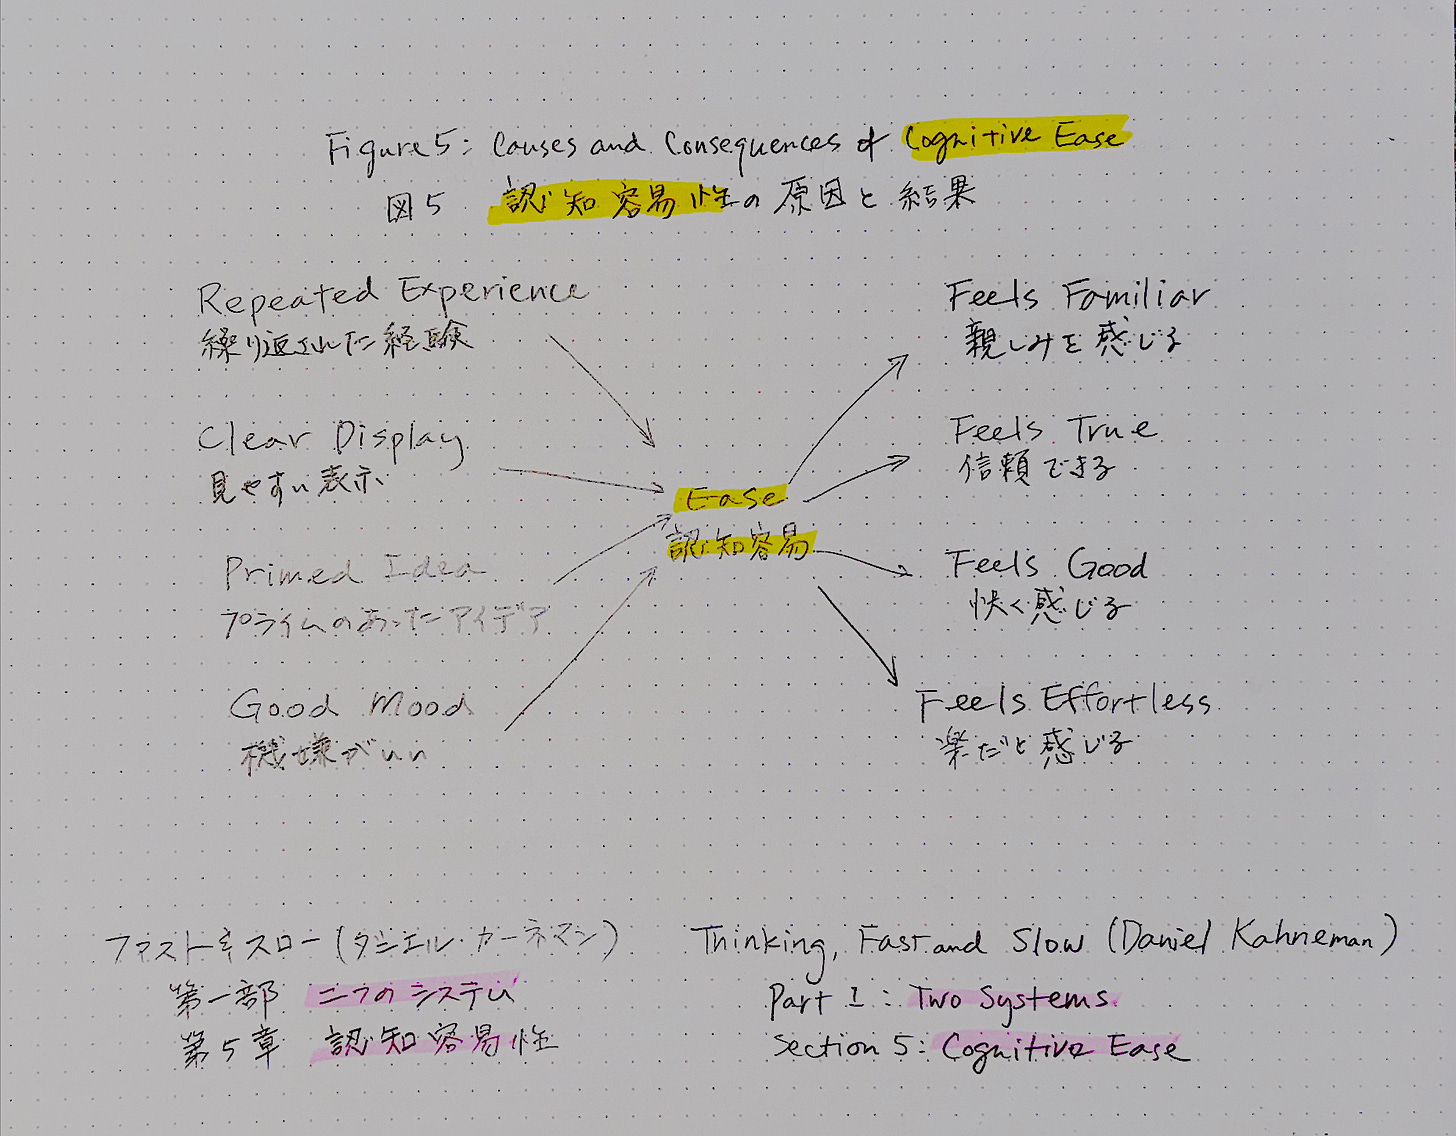 Figure 5: Causes and Consequences of Cognitive Ease
図5 認知容易性の原因と結果
Repeated Experience
繰り返された経験
Clear Display
見やすい表示
Primed Idea
プライムのあったアイデア
Good Mood
機嫌がいい
Ease
認知容易
Feels Familiar
親しみを感じる
Feels True
信頼できる
Feels Good
快く感じる
Feels Effortless
楽だと感じる
ファスト&スロー (ダニエル・カーネマン)
第一部 二つのシステム
第5章 認知容易性
Thinking, Fast and Slow (Daniel Kahneman)
Part 1: Two Systems
Section 5: Cognitive Ease